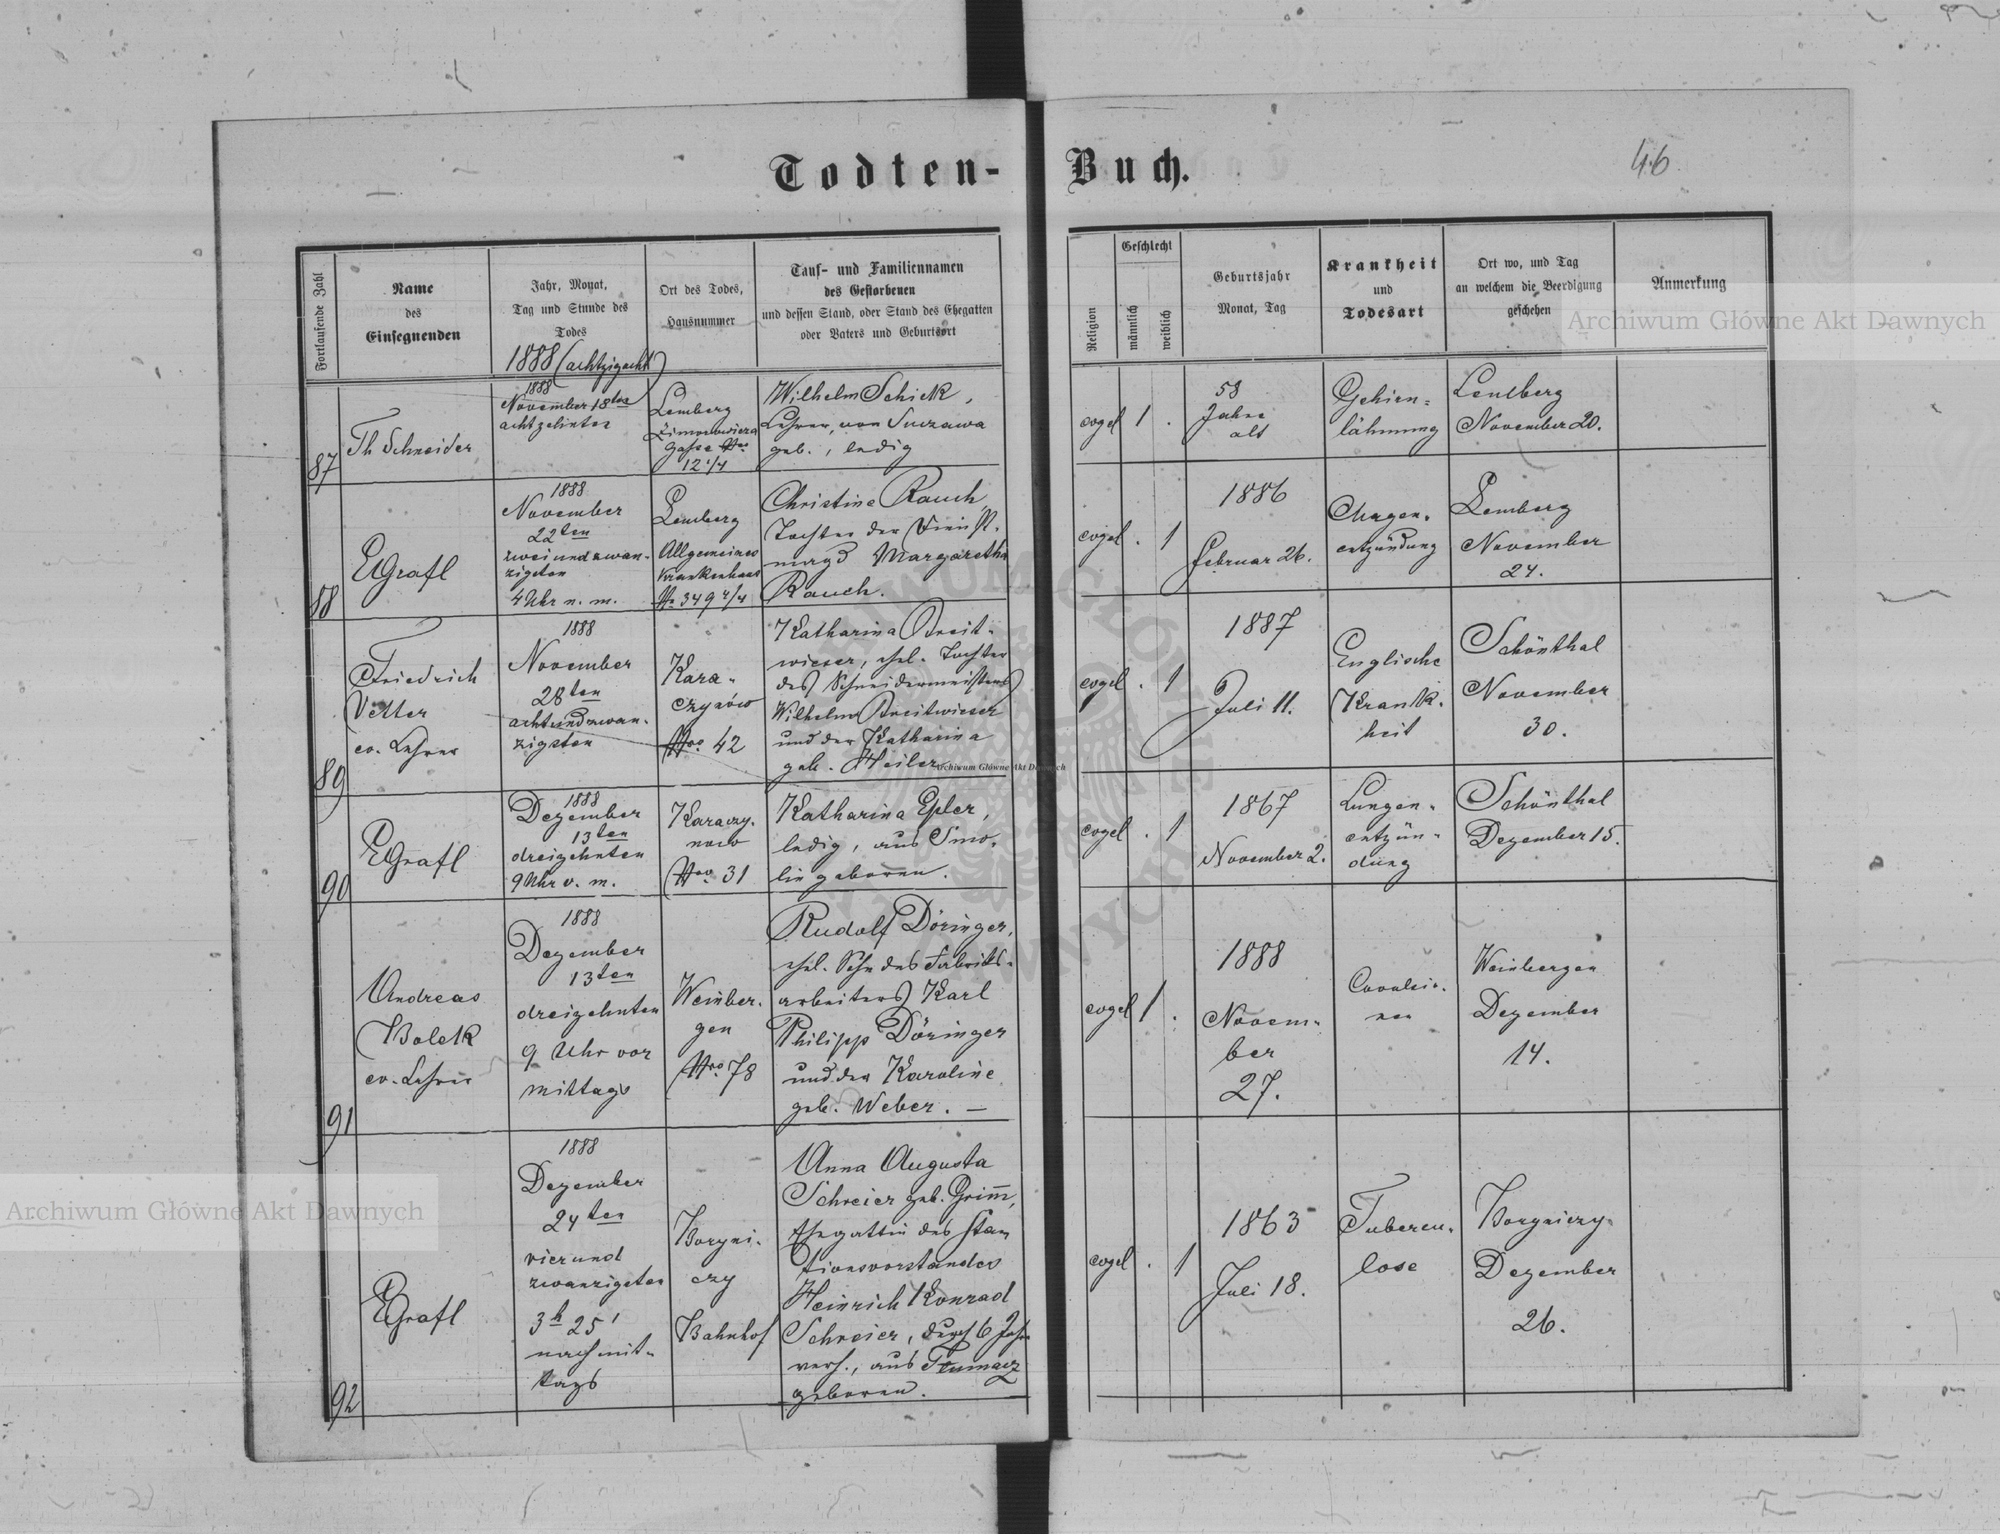 Todten-Buch.
46
Fortlaufende Zahl
Name
des
Einsegnenden
Jahr, Monat,
Tag und Stunde des
Todes
1888 (achtzigacht)
Ort des Todes,
Hausnummer
Tauf- und Familiennamen
des Gestorbenen
und dessen Stand, oder Stand des Ehegatten
oder Vaters und Geburtsort
Religion
Geschlecht
männlich
weiblich
Geburtsjahr
Monat, Tag
Krankheit
und
Todesart
Ort wo, und Tag
an welchem die Beerdigung
geschehen
Anmerkung
87
Th Schneider
1888
November 18ten
achtzehnten
Lemberg
Gasse Nro
12 1/4
Wilhelm Schick,
Lehrer, von Suczawa
geb., ledig
evgel
1 .
58
Jahre
alt
Gehirn-
lähmung
Lemberg
November 20.
88
EGrafl
1888
November
22ten
zweiundzwan-
zigsten
4 Uhr n. m.
Lemberg
Allgemeines
Krankenhaus
No 349 4/4
Christine Rauch,
Tochter der Dienst-
magd Margaretha
Rauch.
evgel
. 1
1886
Februar 26.
Magen-
entzündung
Lemberg
November
24.
89
Friedrich
Vetter
ev. Lehrer
1888
November
28ten
achtundzwan-
zigsten
Kara-
czynów
Nro 42
Katharina Breit-
wieser, ehel. Tochter
des Schneidermeisters
Wilhelm Breitwieser
und der Katharina
geb. Heiler
evgel
. 1
1887
Juli 11.
Englische
Krank-
heit
Schönthal
November
30.
90
EGrafl
1888
Dezember
13ten
dreizehnten
9 Uhr v. m.
Karaczy-
now
Nro 31
Katharina Epler,
ledig, aus Smo-
lin geboren.
evgel
. 1
1867
November 2.
Lungen-
entzün-
dung
Schönthal
Dezember 15.
91
Andreas
Bolek
ev. Lehrer
1888
Dezember
13ten
dreizehnten
9 Uhr vor
mittags
Weinber-
gen
Nro 78
Rudolf Döringer,
ehel. Sohn des Fabriks-
arbeiters Karl
Philipp Döringer
und der Karoline
geb. Weber. —
evgel
1 .
1888
Novem-
ber
27.
Weinbergen
Dezember
14.
92
EGrafl
1888
Dezember
24ten
vierund
zwanzigsten
3h 25'
nachmit-
tags
Boryni-
czy
Bahnhof
Anna Augusta
Schreier geb. Grimm,
Ehegattin des Sta-
tionsvorstandes
Heinrich Konrad
Schreier, durch 6 Jahre
verh., aus Tłumacz
geboren.
evgel
. 1
1863
Juli 18.
Tubercu-
lose
Boryniczy
Dezember
26.
Archiwum Główne Akt Dawnych
Archiwum Główne Akt Dawnych
Archiwum Główne Akt Dawnych